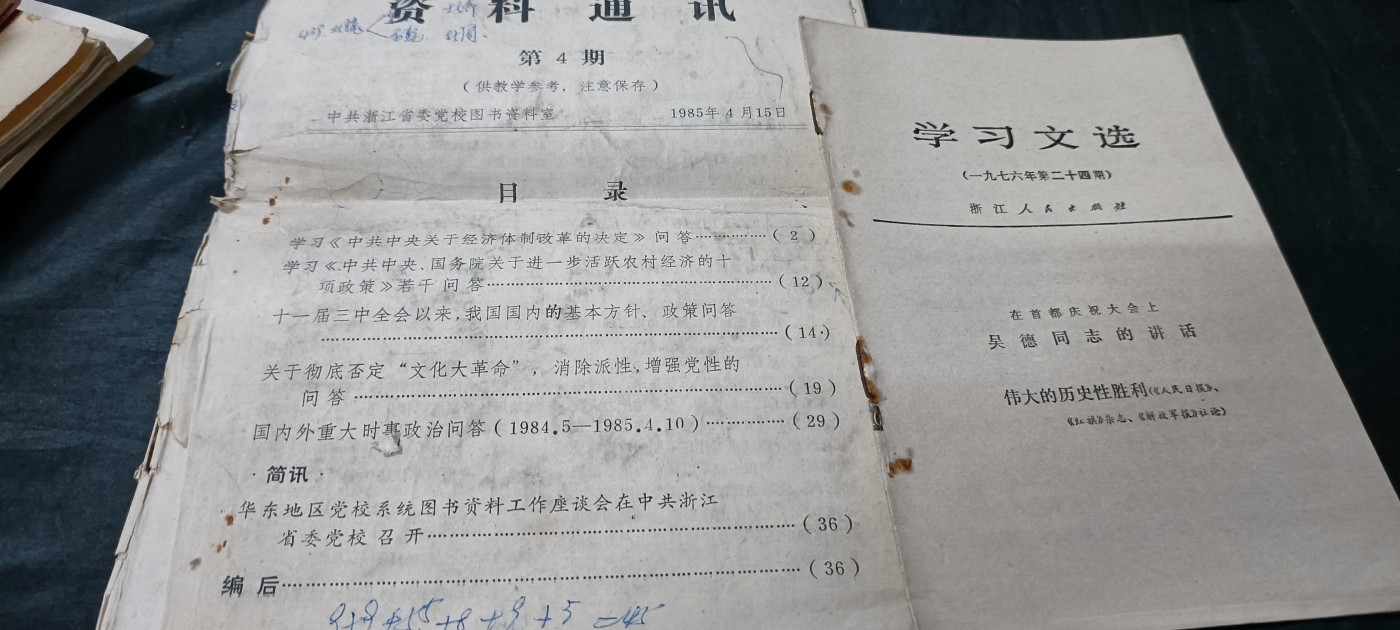 资料通讯
第 4 期
（供教学参考，注意保存）
中共浙江省委党校图书资料室 1985年 4 月15日
目 录
学习《中共中央关于经济体制改革的决定》问答……………（ 2 ）
学习《中共中央、国务院关于进一步活跃农村经济的十
项政策》若干问答……………（12）
十一届三中全会以来，我国国内的基本方针、政策问答
……………（14）
关于彻底否定“文化大革命”，消除派性，增强党性的
问答……………（19）
国内外重大时事政治问答（1984.5—1985.4.10）……………（29）
·简讯·
华东地区党校系统图书资料工作座谈会在中共浙江
省委党校召开……………（36）
编后……………（36）
学习文选
（一九七六年第二十四期）
浙江人民出版社
在首都庆祝大会上
吴德同志的讲话
伟大的历史性胜利（《人民日报》、
《红旗》杂志、《解放军报》社论）